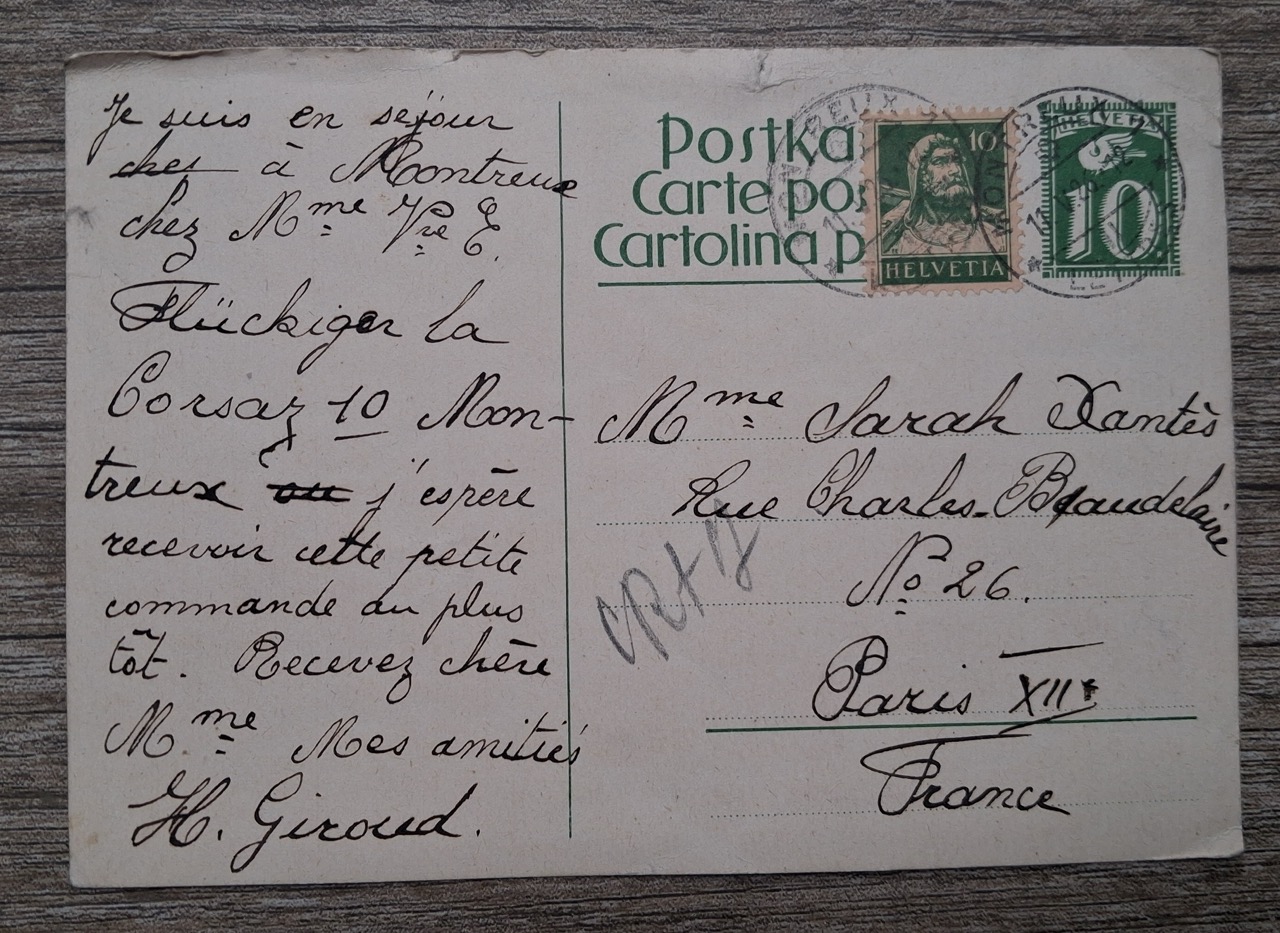 Je suis en séjour
chez à Montreux
chez Mme Vve E.
Flückiger la
Corsaz 10 Mon-
treux ou j'espère
recevoir cette petite
commande au plus
tôt. Recevez chère
Mme Mes amitiés
H. Giroud.
Postka
Carte pos
Cartolina p
10
HELVETIA
MONTREUX
HELVETIA
10
MONTREUX
Mme Sarah Xantès
Rue Charles-Beaudelaire
No 26.
Paris XIIe
France